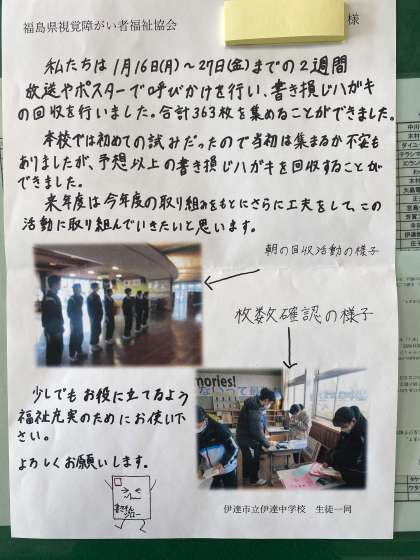 福島県視覚障がい者福祉協会
様
私たちは1月16日(月)～27日(金)までの2週間
放送やポスターで呼びかけを行い、書き損じハガキ
の回収を行いました。合計363枚を集めることができました。
本校では初めての試みだったので当初は集まるか不安も
ありましたが、予想以上の書き損じハガキを回収することが
できました。
来年度は今年度の取り組みをもとにさらに工夫をして、この
活動に取り組んでいきたいと思います。
朝の回収活動の様子
枚数確認の様子
少しでもお役に立てるよう
福祉充実のためにお使い下
さい。
よろしくお願いします。
伊達市立伊達中学校 生徒一同